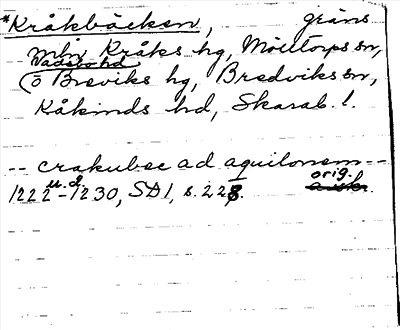 *Kråkbäcken, gräns
mln Kråks hg, Mölltorps sn,
Vadsbo hd
o Breviks hg, Bredviks sn,
Kåkinds hd, Skarab. l.
-- crakubec ad aquilonem --
orig.
1222 u. 2-1230, SD 1, s. 228.